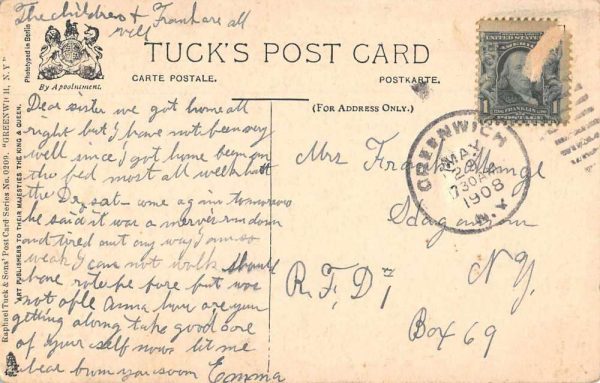 The children & Frank are all
well
Phototyped in Berlin
By Appointment.
TUCK'S POST CARD
CARTE POSTALE.
POSTKARTE.
(FOR ADDRESS ONLY.)
Raphael Tuck & Sons' Post Card Series No. 0209. "GREENWICH, N.Y."
ART PUBLISHERS TO THEIR MAJESTIES THE KING & QUEEN.
Dear sister we got home all
right but I have not been very
well since I got home been on
the bed most all week
the Dr, sat- come again tomorrow
he said it was a nerves run down
and tired out any way I am so
weak I can not walk should
have before but was
not able Anna how are you
getting along take good care
of your self now let me
hear from you soon Emma
UNITED STATES OF AMERICA
1 FRANKLIN 1
POSTAGE
GREENWICH
MAY
730A
1908
N.Y.
Mrs Frank
N.Y.
R.F.D, 1
Box 69